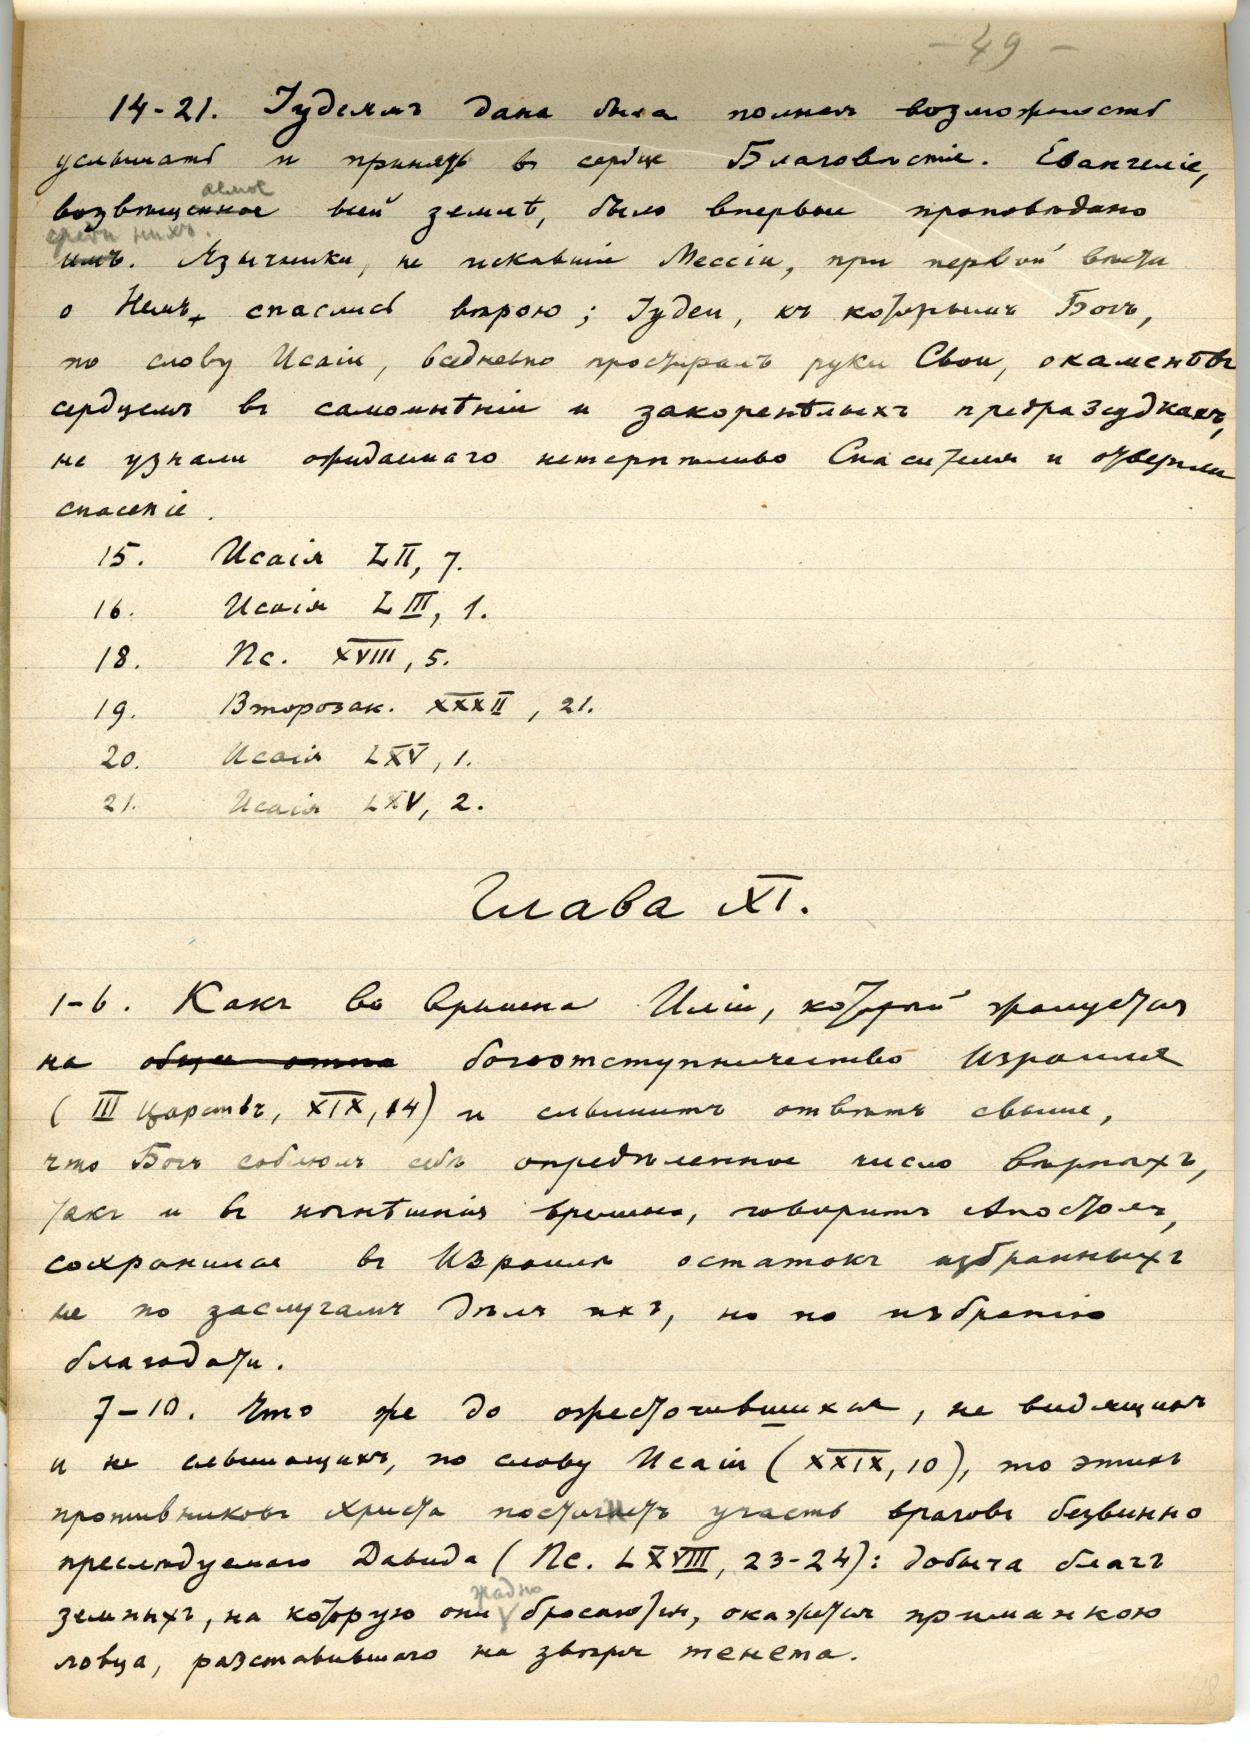 - 49 -
14-21. Іудеямъ дана была полная возможность
услышать и принять въ сердце Благовѣстіе. Евангеліе,
аемое
возвѣщенное всей землѣ, было впервые проповѣдано
среди нихъ.
имъ. Язычники, не искавшіе Мессіи, при первой вѣсти
о Немъ, спаслись вѣрою; Іудеи, къ которымъ Богъ,
по слову Исаіи, вседневно простиралъ руки Свои, окаменѣвъ
сердцемъ въ самомнѣніи и закоренѣлыхъ предразсудкахъ,
не узнали ожидаемаго нетерпѣливо Спасителя и отвергли
спасеніе.
15. Исаія LII, 7.
16. Исаія LIII, 1.
18. Пс. XVIII, 5.
19. Второзак. XXXII, 21.
20. Исаія LXV, 1.
21. Исаія LXV, 2.
Глава XI.
1-6. Какъ во времена Иліи, который жалуется
на богоотступничество Израиля
(III Царствъ, XIX, 14) и слышитъ отвѣтъ свыше,
что Богъ соблюлъ себѣ опредѣленное число вѣрныхъ,
такъ и въ нынѣшнія времена, говоритъ Апостолъ,
сохранился въ Израилѣ остатокъ избранныхъ
не по заслугамъ дѣлъ ихъ, но по избранію
благодати.
7-10. Что же до ожесточившихся, не видящихъ
и не слышащихъ, по слову Исаіи (XXIX, 10), то этихъ
противниковъ Христа постигнетъ участь враговъ безвинно
преслѣдуемаго Давида (Пс. LXVIII, 23-24): добыча благъ
жадно
земныхъ, на которую они бросаются, окажется приманкою
ловца, разставившаго на звѣря тенета.